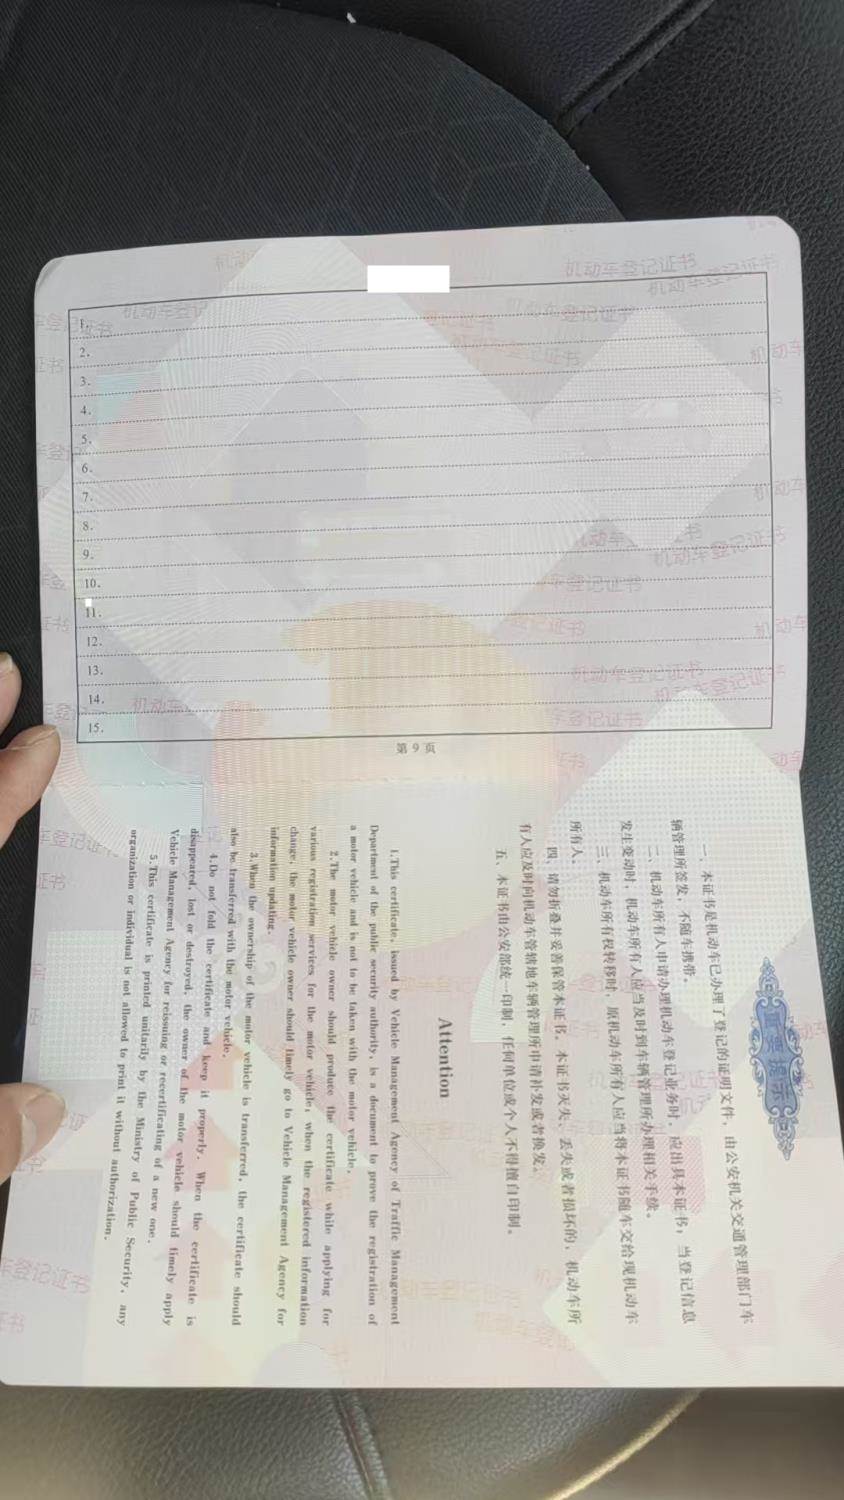 1.
2.
3.
4.
5.
6.
7.
8.
9.
10.
11.
12.
13.
14.
15.
第 9 页
重要提示
一、本证书是机动车已办理了登记的证明文件，由公安机关交通管理部门车
辆管理所签发，不随车携带。
二、机动车所有人申请办理机动车登记业务时，应出具本证书；当登记信息
发生变动时，机动车所有人应当及时到车辆管理所办理相关手续。
三、机动车所有权转移时，原机动车所有人应当将本证书随车交给现机动车
所有人。
四、请勿折叠并妥善保管本证书。本证书灭失、丢失或者损坏的，机动车所
有人应及时向机动车管辖地车辆管理所申请补发或者换发。
五、本证书由公安部统一印制，任何单位或个人不得擅自印制。
Attention
1.This certificate, issued by Vehicle Management Agency of Traffic Management
Department of the public security authority, is a document to prove the registration of
a motor vehicle and is not to be taken with the motor vehicle.
2.The motor vehicle owner should produce the certificate while applying for
various registration services for the motor vehicle, when the registered information
change, the motor vehicle owner should timely go to Vehicle Management Agency for
information updating.
3.When the ownership of the motor vehicle is transferred, the certificate should
also be transferred with the motor vehicle.
4.Do not fold the certificate and keep it properly. When the certificate is
disappeared, lost or destroyed, the owner of the motor vehicle should timely apply
Vehicle Management Agency for reissuing or recertificating of a new one.
5.This certificate is printed unitarily by the Ministry of Public Security, any
organization or individual is not allowed to print it without authorization.
机动车登记证书